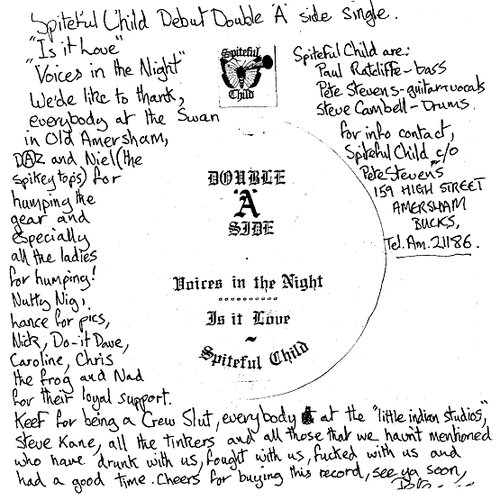 Spiteful Child Debut Double 'A' side single.
"Is it Love"
"Voices in the Night"
We'de like to thank,
everybody at the Swan
in Old Amersham,
DAZ and Niel (the
spikeytops) for
humping the
gear and
especially
all the ladies
for humping!
Nutty Nig,
hance for pics,
Nick, Do-it Dave,
Caroline, Chris
the frog and Nad
for their loyal support.
Keef for being a Crew Slut, everybody at the "little indian studios",
Steve Kane, all the tinkers and all those that we havnt mentioned
who have drunk with us, fought with us, fucked with us and
had a good time. Cheers for buying this record, see ya soon,
Spiteful
Child
Spiteful Child are:
Paul Ratcliffe - bass
Pete Stevens - guitar + vocals
Steve Cambell - Drums.
for info contact,
Spiteful Child c/o
Pete Stevens
159 HIGH STREET
AMERSHAM
BUCKS,
Tel. Am. 21186.
DOUBLE
'A'
SIDE
Voices in the Night
Is it Love
~
Spiteful Child